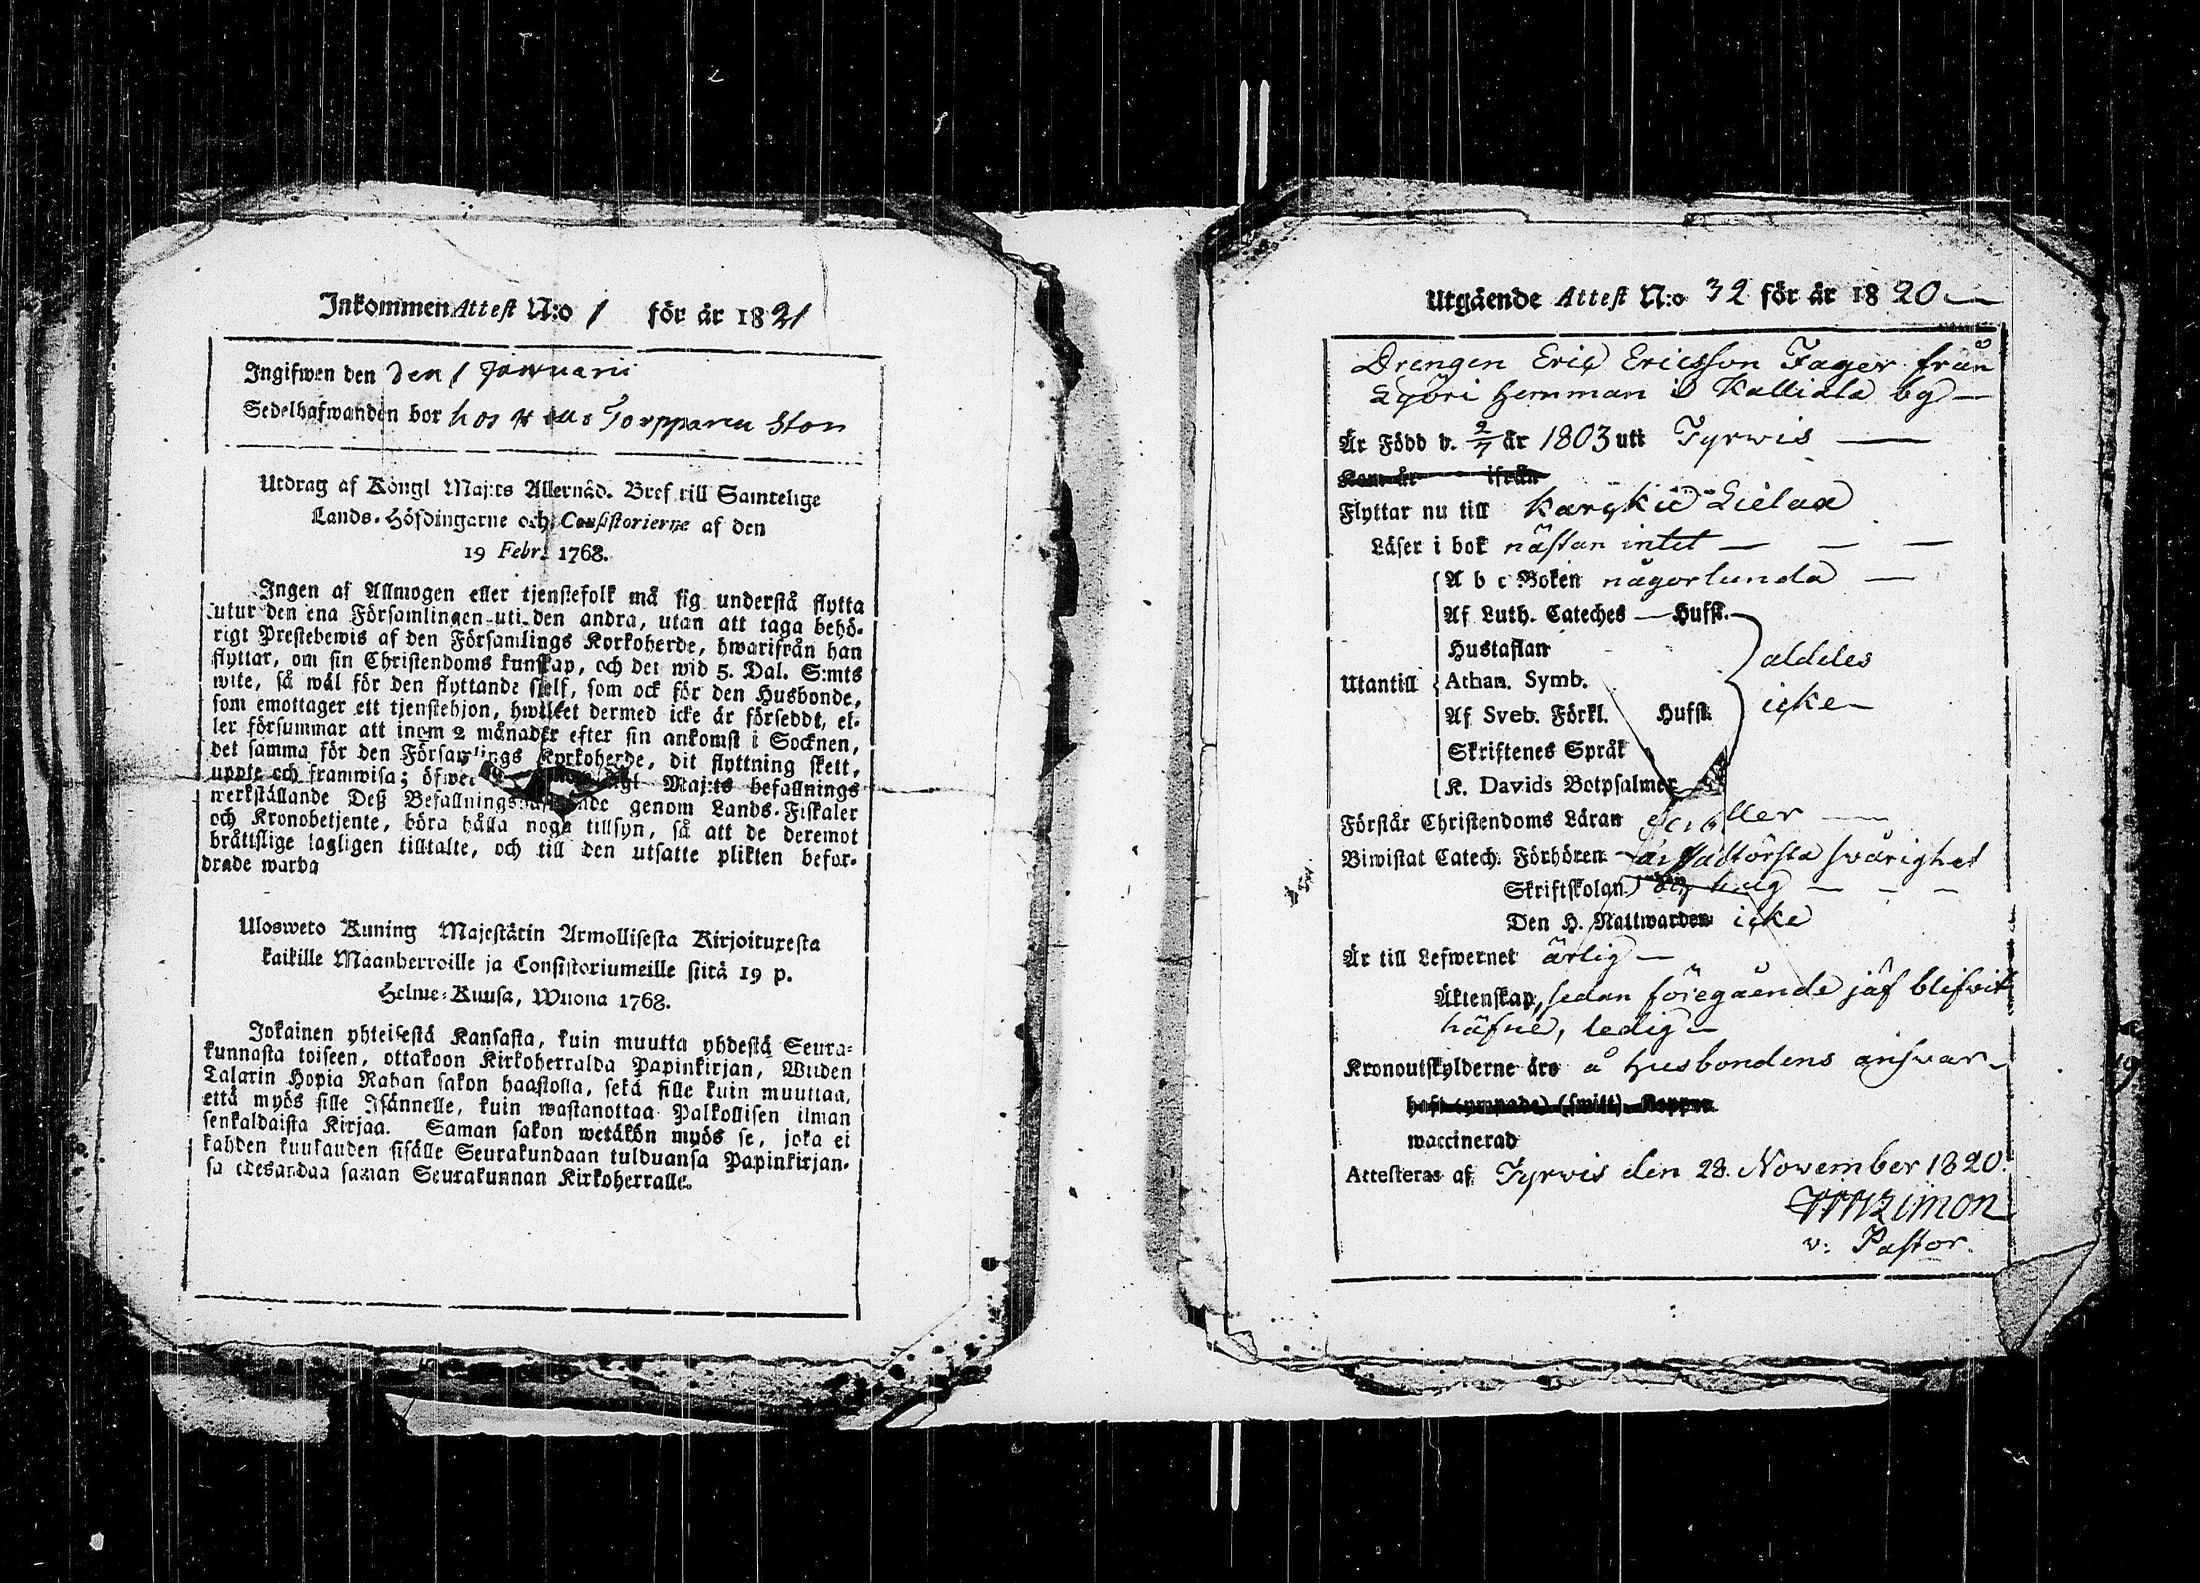 Inkommen Attest N:o 1 för år 1821
Ingifwen den den 1 Januarii
Sedelhafwanden bor hos Torpparen
Utdrag af Kongl Maj:ts Allernåd. Bref till Samtelige
Lands-Höfdingarne och Consistorierne af den
19 Febr. 1768.
Ingen af Allmogen eller tjenstefolk må sig understå flytta
utur den ena Församlingen uti den andra, utan att taga behö-
rigt Prestebewis af den Församlings Kyrkoherde, hwarifrån han
flyttar, om sin Christendoms kunskap, och det wid 5. Dal. S:mts
wite, så wäl för den flyttande sjelf, som ock för den Husbonde,
som emottager ett tjenstehjon, hwilket dermed icke är försedt, el-
ler försummar att inom 2 månader efter sin ankomst i Socknen,
det samma för den Församlings Kyrkoherde, dit flyttning skett,
uppte och framwisa; öfwer Maj:ts befallnings
werkställande Deß Befallningshafwande genom Lands-Fiskaler
och Kronobetjente, böra hålla noga tillsyn, så att de deremot
bråttslige lagligen tilltalte, och till den utsatte plikten befor-
drade warda
Ulosweto Kuning Majestätin Armollisesta Kirjoituxesta
kaikille Maanherroille ja Consistoriumeille siitä 19 p.
Helme-Kuusa, Wuona 1768.
Jokainen yhteisestä Kansasta, kuin muutta yhdestä Seura-
kunnasta toiseen, ottakoon Kirkoherralda Papinkirjan, Wiiden
Talarin Hopia Rahan sakon haastolla, sekä sille kuin muuttaa,
että myös sille Isännelle, kuin wastanottaa Palkollisen ilman
senkaldaista Kirjaa. Saman sakon wetäkön myös se, joka ei
kahden kuukauden sisälle Seurakundaan tulduansa Papinkirjan-
sa edesandaa saman Seurakunnan Kirkoherralle.
Utgående Attest N:o 32 för år 1820
Drengen Eric Ericsson Fager från
Hemman i Kalliala by
Är Född d. 2/7 år 1803 uti Tyrwis
Kom år ifrån
Flyttar nu till Karkku Lielax
Läser i bok nästan intet
A b c Boken någorlunda
Af Luth. Cateches Hufst.
Hustaflan aldeles
Utantill Athan. Symb.
Af Sveb. Förkl. Hufst. icke
Skriftenes Språk
K. Davids Botpsalmer
Förstår Christendoms Läran
Biwistat Catech. Förhören största swårighet
Skriftskolan
Den H. Nattwarden icke
Är till Lefwernet ärlig
Äktenskap, sedan föregående jäf blifwit
häfne, ledig
Kronoutskylderne äro å Husbondens answar
haft (ympade) (smitt) Koppor
waccinerad
Attesteras af Tyrwis den 28. November 1820.
v: Pastor.